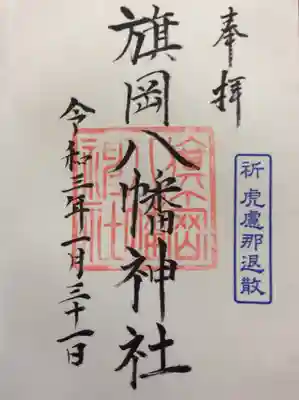 奉拝
祈 虎慮那退散
旗岡八幡神社
令和三年一月三十一日